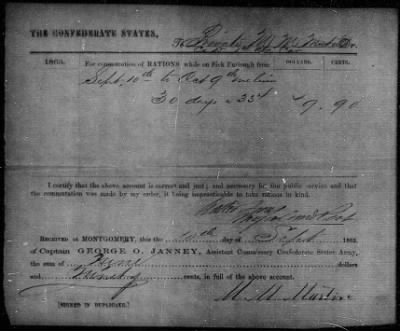 THE CONFEDERATE STATES,
To Private M. M. Martin Dr.
1863. For commutation of RATIONS while on Sick Furlough from DOLLARS. CENTS.
Sept. 10th to Oct 9th inclu
30 days a 33 9.90
I certify that the above account is correct and just; and necessary for the public service and that
the commutation was made by my order, it being impracticable to take rations in kind.
RECEIVED AT MONTGOMERY, this the day of 1863,
of Captain GEORGE O. JANNEY, Assistant Commissary Confederate States Army,
the sum of Nine dollars
and Ninety cents, in full of the above account.
M. M. Martin
[SIGNED IN DUPLICATE.]